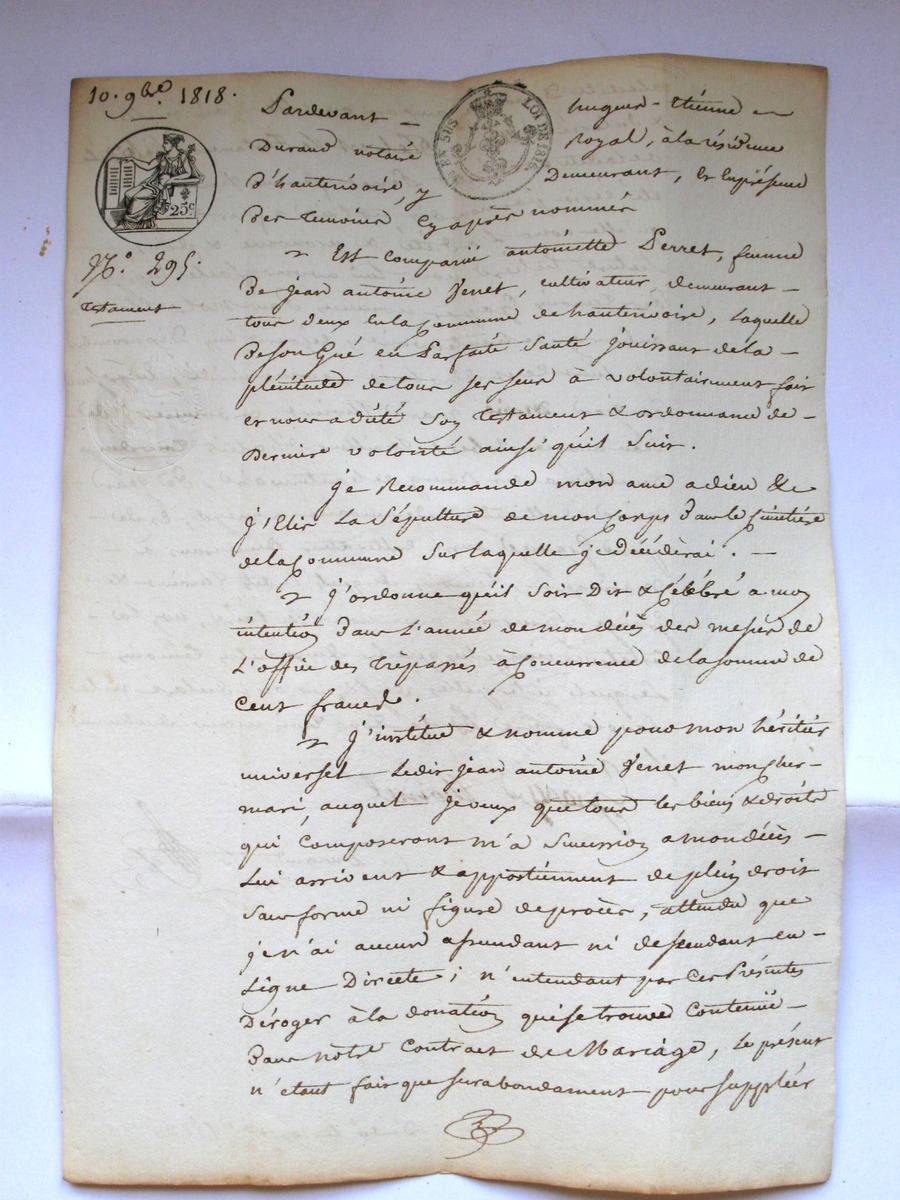 10. 9bre 1818.
Pardevant hugues-Etiénne
EN SUS LOI DE 1816.
Durand notaire royal, à la résidence
25c
D'hauterivoire, y Demeurant, & En présence
Des temoins Cy après nommés
N.o 295.
Testament
Est comparüe antoinette Perret, femme
De jean antoine Venet, cultivateur, demeurant
tous deux en la Commune de hauterivoire, Laquelle
De son Gré en Parfaite Santé joüissant de la
plénitude de tous ses sens à volontairement fait
et nous a dicté Son Testament & ordonnance de
Derniere volonté ainsi qu'il Suit.
je Recommande mon ame a dieu &
j'Elis La Sépulture de mon Corps Dans le Cimetière
de la Commune Sur laquelle je Décèderai.
j'ordonne qu'il Soit Dit & Célébré a mon
intention Dans L'année de mon décès des messes de
L'office des Trépassés à Concurrence de la somme de
Cent francs.
j'institüe & nomme pour mon héritier
universel Ledit jean antoine Venet mon Cher
mari, auquel je veux que tous les biens & droits
qui Composeront m'a Succession a mon décès
Lui arrivent & appartiennent de plein droit
Sans forme ni figure de procès, attendu que
je n'ai aucun assendant ni dessendant en
Ligne Directe; n'entendant par Ces Présentes
Déroger à la donation qui se trouve Contenüe
Dans notre Contract de Mariage, Le présent
n'etant fait que surabondament pour suppléér